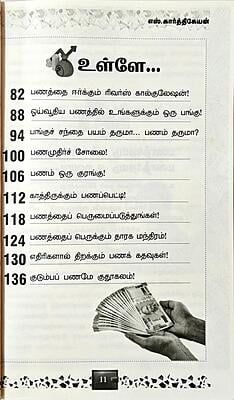 எஸ்.கார்த்திகேயன்
உள்ளே...
82 பணத்தை ஈர்க்கும் ரிவர்ஸ் கால்குலேஷன்!
88 ஓய்வூதிய பணத்தில் உங்களுக்கும் ஒரு பங்கு!
94 பங்குச் சந்தை பயம் தருமா... பணம் தருமா?
100 பணமுதிர்ச் சோலை!
106 பணம் ஒரு குரங்கு!
112 காத்திருக்கும் பணப்பெட்டி!
118 பணத்தைப் பெருமைப்படுத்துங்கள்!
124 பணத்தைப் பெருக்கும் தாரக மந்திரம்!
130 எதிரிகளால் திறக்கும் பணக் கதவுகள்!
136 குடும்பப் பணமே குதூகலம்!
11